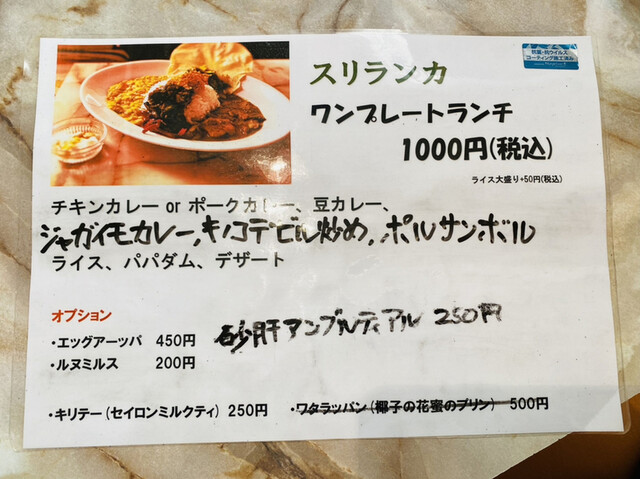 抗菌・抗ウイルス
コーティング施工済み
スリランカ
ワンプレートランチ
1000円(税込)
ライス大盛り+50円(税込)
チキンカレー or ポークカレー、豆カレー、
ジャガイモカレー、キノコデビル炒め、ポルサンボル
ライス、パパダム、デザート
オプション
・エッグアーッパ 450円
砂肝アンブルティアル 250円
・ルヌミルス 200円
・キリテー(セイロンミルクティ) 250円
・ワタラッパン(椰子の花蜜のプリン) 500円